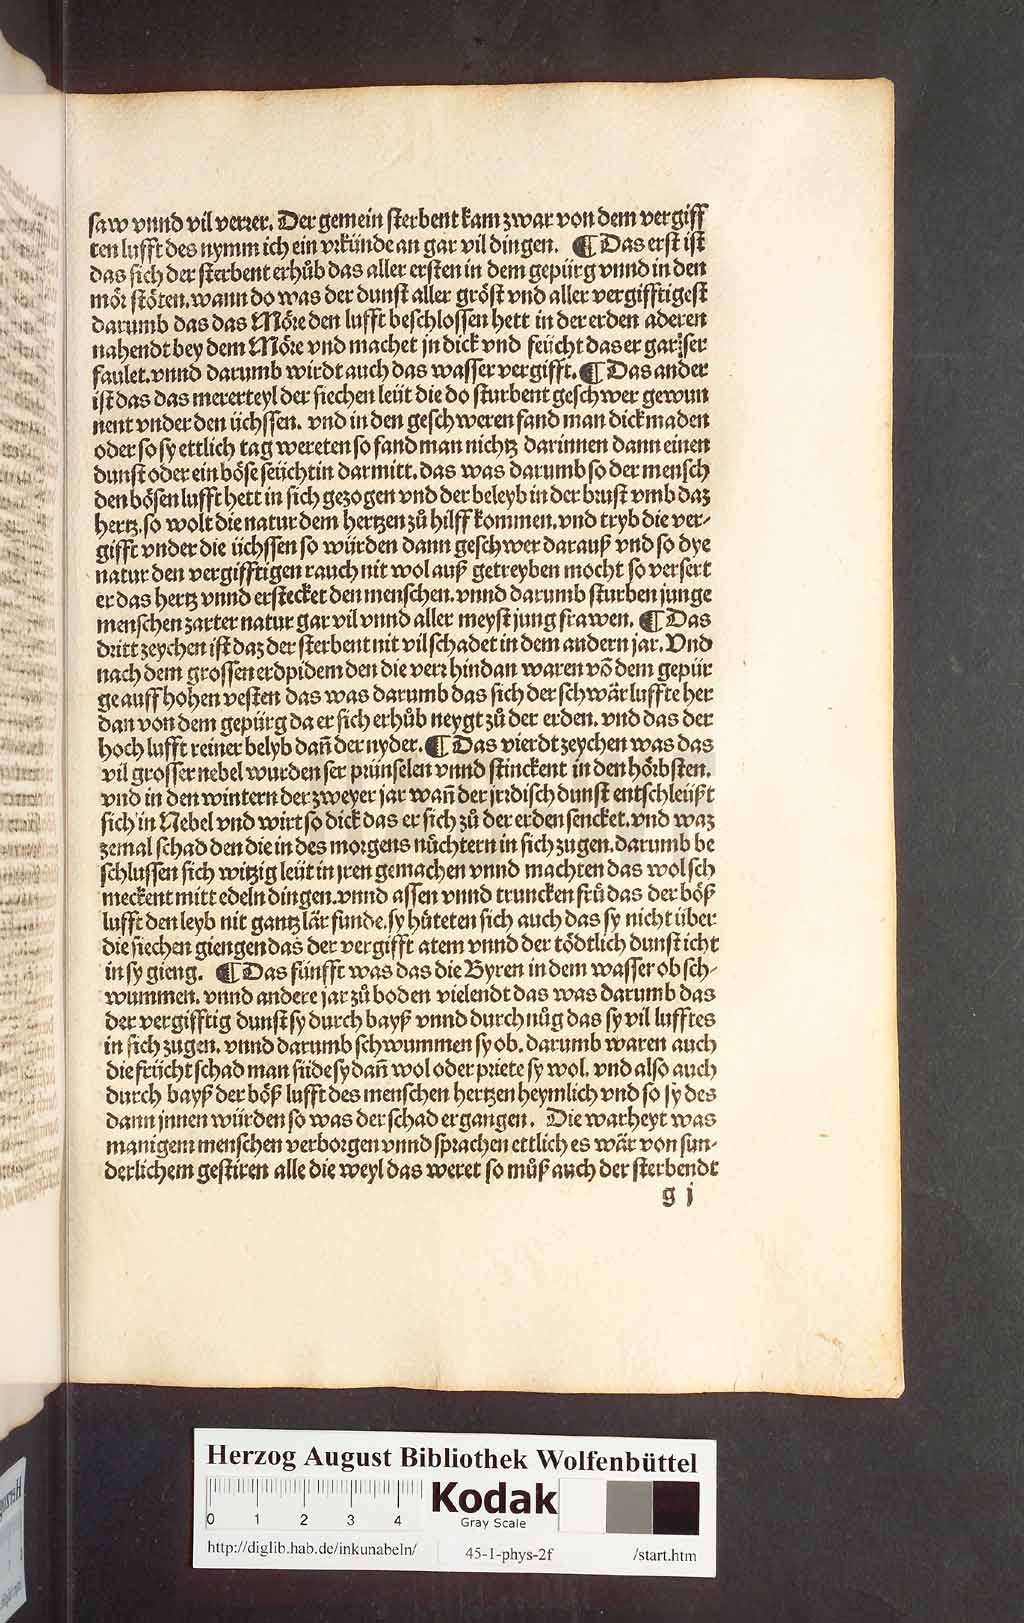 saw vnnd vil verrer. Der gemein sterbent kam zwar von dem vergiff
ten lufft des nymm ich ein vrkünde an gar vil dingen. ¶ Das erst ist
das sich der sterbent erhůb das aller ersten in dem gepürg vnnd in den
mör stöten. wann do was der dunst aller gröst vnd aller vergifftigest
darumb das das Möre den lufft beschlossen hett in der erden aderen
nahendt bey dem Möre vnd machet jn dick vnd feücht das er gar ser
faulet. vnnd darumb wirdt auch das wasser vergifft. ¶ Das ander
ist das das mererteyl der siechen leüt die do sturbent geschwer gewun
nent vnder den üchssen. vnd in den geschweren fand man dick maden
oder so sy ettlich tag wereten so fand man nichtz darinnen dann einen
dunst oder ein böse feüchtin darmitt. das was darumb so der mensch
den bösen lufft hett in sich gezogen vnd der beleyb in der brust vmb daz
hertz. so wolt die natur dem hertzen zů hilff kommen. vnd tryb die ver-
gifft vnder die üchssen so würden dann geschwer darauß vnd so dye
natur den vergifftigen rauch nit wol auß getreyben mocht so versert
er das hertz vnnd erstecket den menschen. vnnd darumb sturben junge
menschen zarter natur gar vil vnnd aller meyst jung frawen. ¶ Das
dritt zeychen ist daz der sterbent nit vil schadet in dem andern jar. Vnd
nach dem grossen erdpidem den die verr hindan waren võ dem gepür
ge auff hohen vesten das was darumb das sich der schwär luffte her
dan von dem gepürg da er sich erhůb neygt zů der erden. vnd das der
hoch lufft reiner belyb dañ der nyder. ¶ Das vierdt zeychen was das
vil grosser nebel wurden ser prünselen vnnd stinckent in den hörbsten.
vnd in den wintern der zweyer jar wañ der jrrdisch dunst entschleüßt
sich in Nebel vnd wirt so dick das er sich zů der erden sencket. vnd waz
zemal schad den die in des morgens nüchtern in sich zugen. darumb be
schlussen sich witzig leüt in jren gemachen vnnd machten das wol sch
meckent mitt edeln dingen. vnnd assen vnnd truncken frů das der böß
lufft den leyb nit gantz lär funde. sy hůteten sich auch das sy nicht über
die siechen giengen das der vergifft atem vnnd der tödtlich dunst icht
in sy gieng. ¶ Das fünfft was das die Byren in dem wasser ob sch-
wummen. vnnd andere jar zů boden vielendt das was darumb das
der vergifftig dunst sy durch bayß vnnd durch nůg das sy vil lufftes
in sich zugen. vnnd darumb schwummen sy ob. darumb waren auch
die frücht schad man süde sy dañ wol oder priete sy wol. vnd also auch
durch bayß der böß lufft des menschen hertzen heymlich vnd so sy des
dann jnnen würden so was der schad ergangen. Die warheyt was
manigem menschen verborgen vnnd sprachen ettlich es wär von sun-
derlichem gestiren alle die weyl das weret so můß auch der sterbendt
g j
Herzog August Bibliothek Wolfenbüttel
0 1 2 3 4
Kodak
Gray Scale
http://diglib.hab.de/inkunabeln/ 45-1-phys-2f /start.htm